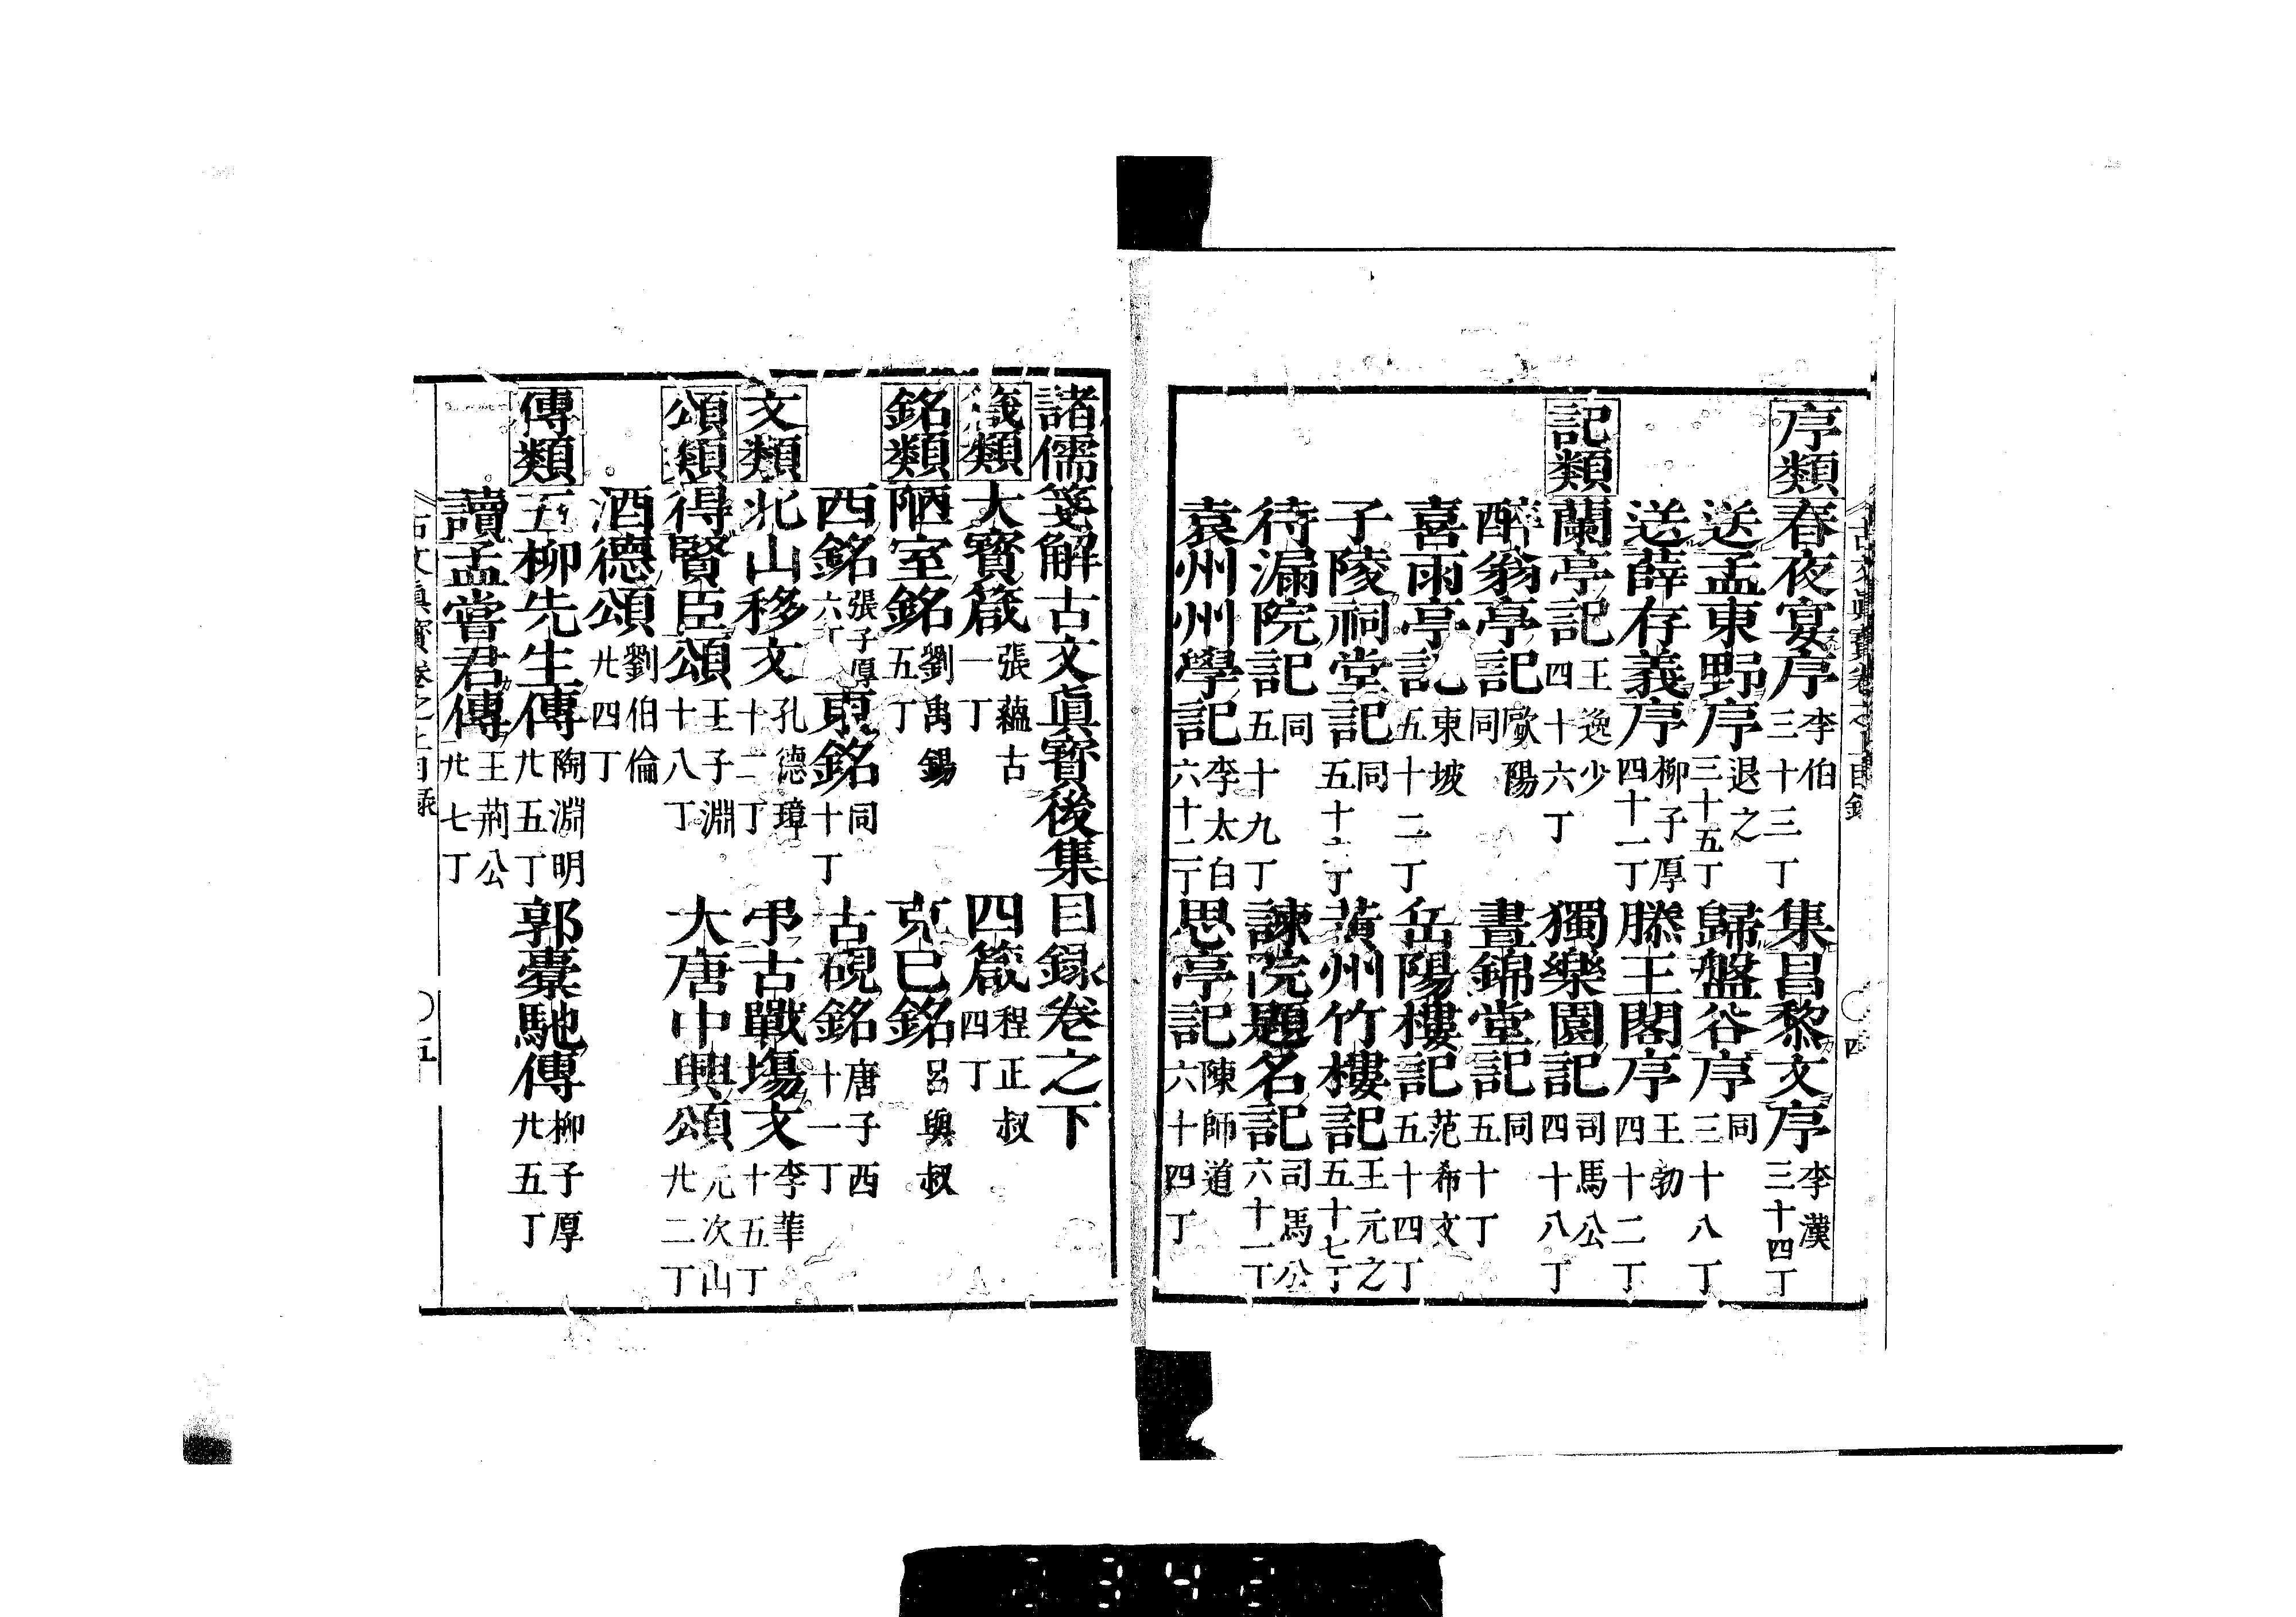 古文眞寳卷之上目錄 〇四
序類 春夜宴序 李伯 三十三丁 集昌黎文序 李漢 三十四丁
送孟東野序 退之 三十五丁 歸盤谷序 同 三十八丁
送薛存義序 柳子厚 四十一丁 滕王閣序 王勃 四十二丁
記類 蘭亭記 王逸少 四十六丁 獨樂園記 司馬公 四十八丁
醉翁亭記 歐陽 同 晝錦堂記 同 五十丁
喜雨亭記 東坡 五十二丁 岳陽樓記 范希文 五十四丁
子陵祠堂記 同 五十六丁 黃州竹樓記 王元之 五十七丁
待漏院記 同 五十九丁 諫院題名記 司馬公 六十一丁
袁州州學記 李太白 六十二丁 思亭記 陳師道 六十四丁
諸儒箋解古文眞寳後集目録卷之下
箴類 大寳箴 張蘊古 一丁 四箴 程正叔 四丁
銘類 陋室銘 劉禹錫 五丁 克己銘 呂與叔
西銘 張子厚 六丁 東銘 同 十丁 古硯銘 唐子西 十一丁
文類 北山移文 孔德璋 十二丁 弔古戰塲文 李華 十五丁
頌類 得賢臣頌 王子淵 十八丁 大唐中興頌 元次山 廾二丁
酒德頌 劉伯倫 廾四丁
傳類 五柳先生傳 陶淵明 廾五丁 郭橐駞傳 柳子厚 廾五丁
讀孟嘗君傳 王荊公 廾七丁
古文眞寳卷之上目錄 〇五